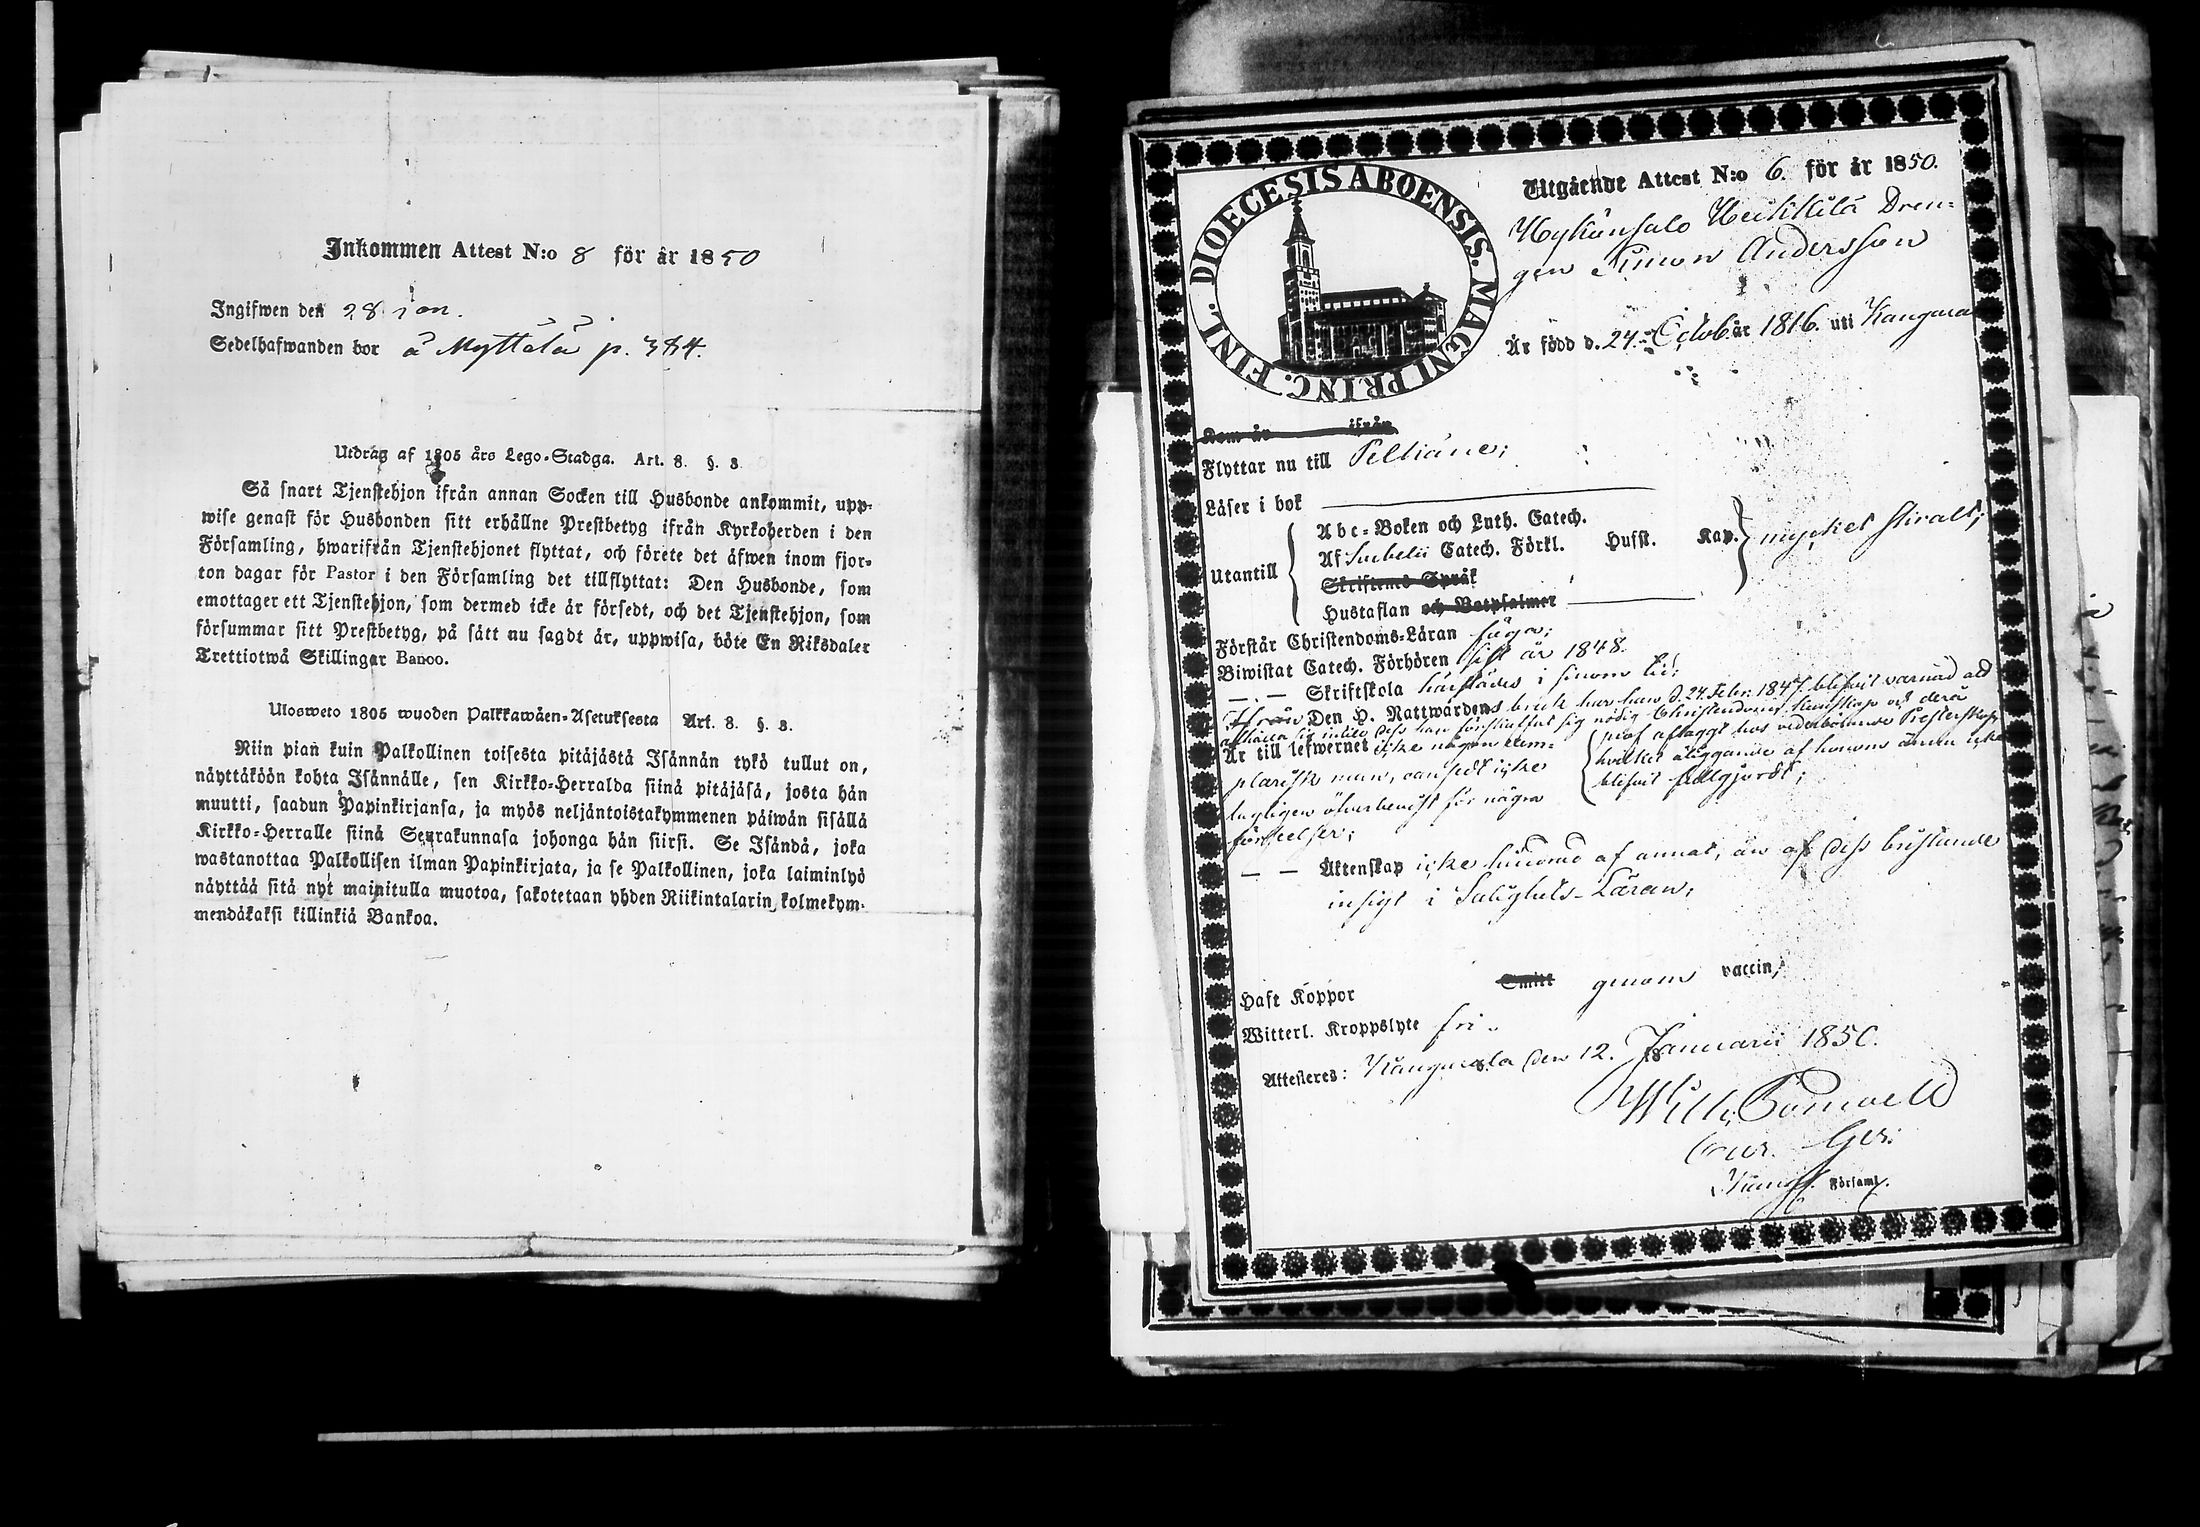 Inkommen Attest N:o 8 för år 1850
Ingifwen den 28 jan.
Sedelhafwanden bor å Myttälä p. 384.
Utdrag af 1805 års Lego-Stadga. Art. 8. §. 3.
Så snart Tjenstehjon ifrån annan Socken till Husbonde ankommit, upp-
wise genast för Husbonden sitt erhållne Prestbetyg ifrån Kyrkoherden i den
Församling, hwarifrån Tjenstehjonet flyttat, och förete det äfwen inom fjor-
ton dagar för Pastor i den Församling det tillflyttat: Den Husbonde, som
emottager ett Tjenstehjon, som dermed icke är försedt, och det Tjenstehjon, som
försummar sitt Prestbetyg, på sätt nu sagdt är, uppwisa, böte En Riksdaler
Trettiotwå Skillingar Banco.
Ulosweto 1805 wuoden Palkkawäen-Asetuksesta Art. 8. §. 3.
Niin pian kuin Palkollinen toisesta pitäjästä Isännän tykö tullut on,
näyttäköön kohta Isännälle, sen Kirkko-Herralda siinä pitäjäsä, josta hän
muutti, saadun Papinkirjansa, ja myös neljäntoistakymmenen päiwän sisällä
Kirkko-Herralle siinä Seurakunnasa johonga hän siirsi. Se Isändä, joka
wastanottaa Palkollisen ilman Papinkirjata, ja se Palkollinen, joka laiminlyö
näyttää sitä nyt mainitulla muotoa, sakotetaan yhden Riikintalarin kolmekym-
mendäkaksi killinkiä Bankoa.
DIOECESIS ABOENSIS. MAGNI PRINC. FINL.
Utgående Attest N:o 6. för år 1850.
Wykänsalo Heikkilä Dren-
gen Simon Andersson
Är född d. 24. Octob. år 1816. uti Kangasa
Kom år ifrån
Flyttar nu till Pelkäne;
Läser i bok
Utantill
Abc-Boken och Luth. Catech.
Af Svebelii Catech. Förkl. Husst. Kap. mycket
Skriftens Språk
Hustaflan och Botpsalmer
Förstår Christendoms-Läran föga;
Biwistat Catech. Förhören sist år 1848.
— . — Skriftskola härstädes i sinom tid;
Ifrån Den H. Nattwardens bruk har han d. 24. Febr. 1847. blifvit varnad att
afhålla sig intill dess han förskaffat sig nödig Christendoms kunskap och derå
prof aflaggt hos vederbörande Presterskap,
Är till lefwernet icke någon exem-
hvilket åliggande af honom ännu icke
plarisk man, oansedt icke
blifvit fullgjordt;
lagligen öfverbevist för några
förseelser;
— — Äktenskap icke hindrad af annat, än af dess bristande
insigt i Salighets-Läran;
Haft Koppor Smitt genom vaccin;
Witterl. Kroppslyte fri.
Attesteres: Kangasala den 12. Januarii 1850.
Kangas. Församl.